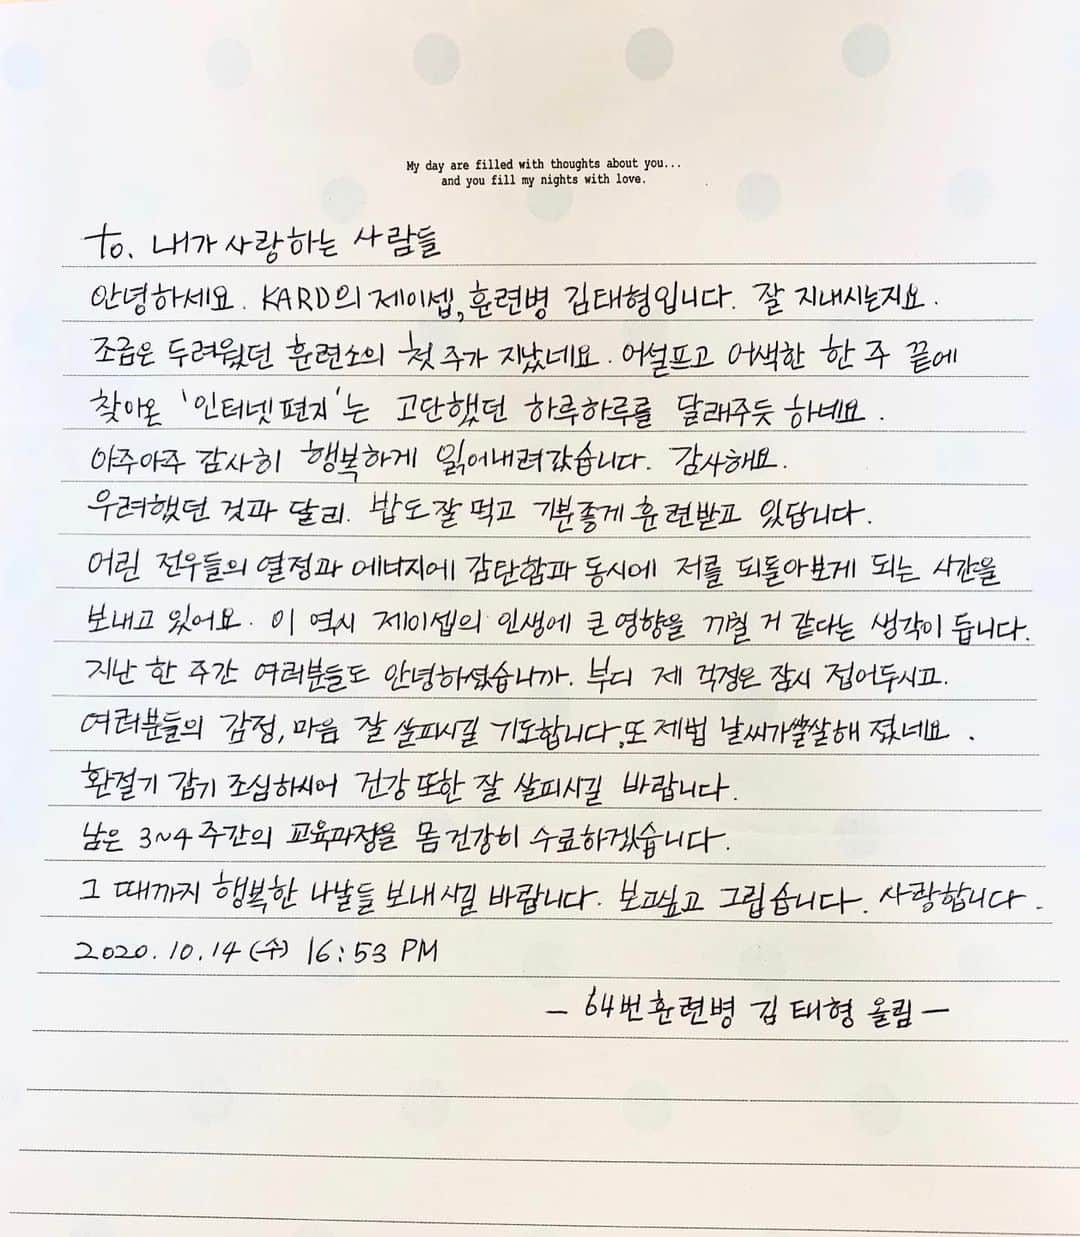 My day are filled with thoughts about you...
and you fill my nights with love.
to. 내가 사랑하는 사람들
안녕하세요. KARD의 제이셉, 훈련병 김태형입니다. 잘 지내시는지요.
조금은 두려웠던 훈련소의 첫 주가 지났네요. 어설프고 어색한 한 주 끝에
찾아온 '인터넷 편지'는 고단했던 하루하루를 달래주듯 하네요.
아주아주 감사히 행복하게 읽어내려갔습니다. 감사해요.
우려했던 것과 달리. 밥도 잘 먹고 기분좋게 훈련받고 있답니다.
어린 전우들의 열정과 에너지에 감탄함과 동시에 저를 되돌아보게 되는 시간을
보내고 있어요. 이 역시 제이셉의 인생에 큰 영향을 끼칠 거 같다는 생각이 듭니다.
지난 한 주간 여러분들도 안녕하셨습니까. 부디 제 걱정은 잠시 접어두시고.
여러분들의 감정, 마음 잘 살피시길 기도합니다. 또 제법 날씨가 쌀쌀해 졌네요.
환절기 감기 조심하시어 건강 또한 잘 살피시길 바랍니다.
남은 3~4주간의 교육과정을 몸 건강히 수료하겠습니다.
그 때까지 행복한 나날들 보내시길 바랍니다. 보고싶고 그립습니다. 사랑합니다.
2020.10.14 (수) 16:53 PM
- 64번 훈련병 김태형 올림 -